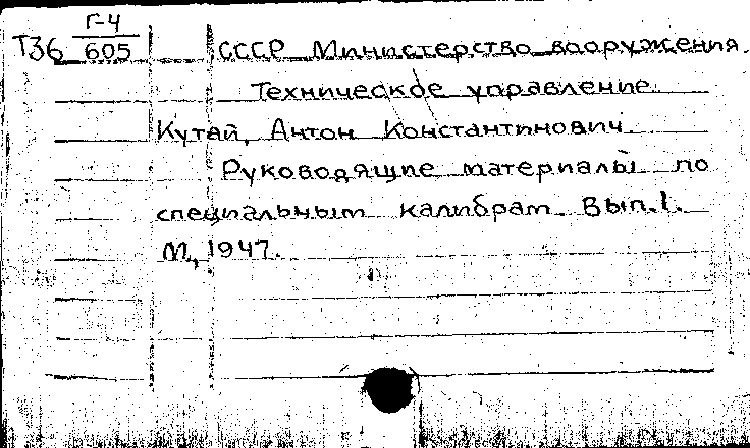 Г-4
Т36 605
СССР Министерство вооружения.
Техническое управление.
Кутай, Антон Константинович
Руководящие материалы по
специальным калибрам. Вып.1.
М., 1947.